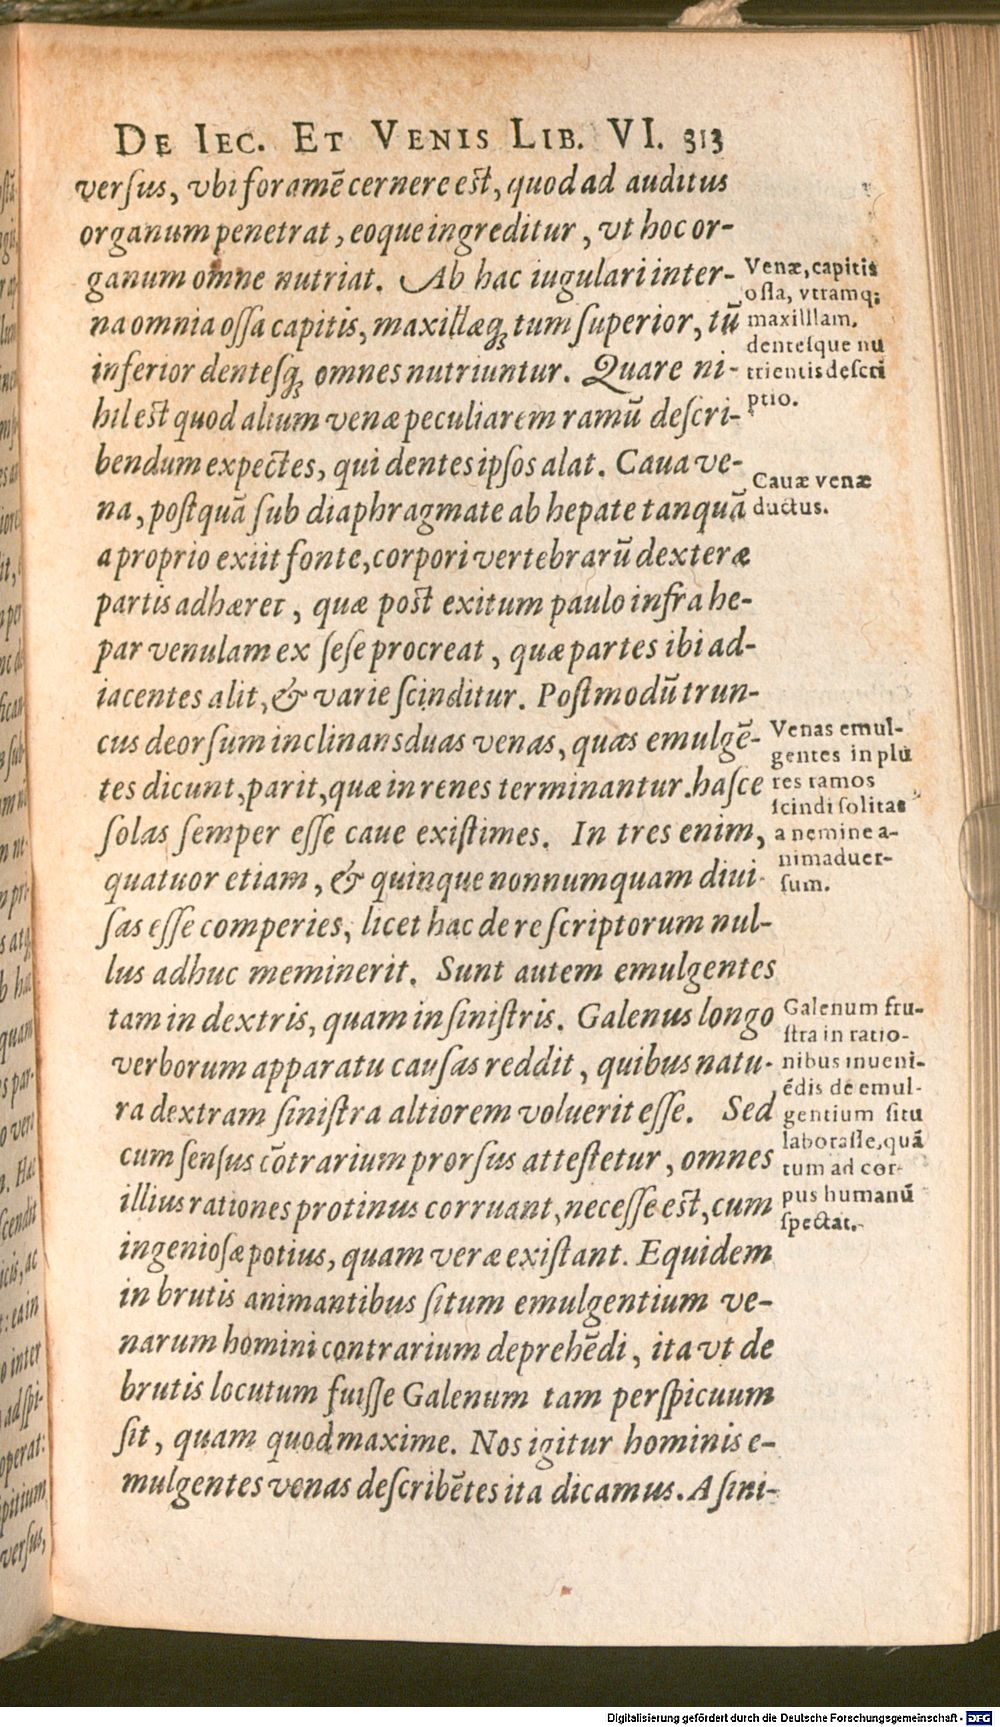 DE IEC. ET VENIS LIB. VI. 313
versus, vbi foramē cernere est, quod ad auditus
organum penetrat, eoque ingreditur, vt hoc or-
ganum omne nutriat. Ab hac iugulari inter-
na omnia ossa capitis, maxillæq; tum superior, tū
inferior dentesq; omnes nutriuntur. Quare ni-
hil est quod alium venæ peculiarem ramū descri-
bendum expectes, qui dentes ipsos alat. Caua ve-
na, postquā sub diaphragmate ab hepate tanquā
a proprio exiit fonte, corpori vertebrarū dexteræ
partis adhæret, quæ post exitum paulo infra he-
par venulam ex sese procreat, quæ partes ibi ad-
iacentes alit, & varie scinditur. Postmodū trun-
cus deorsum inclinans duas venas, quas emulgē-
tes dicunt, parit, quæ in renes terminantur. hasce
solas semper esse caue existimes. In tres enim,
quatuor etiam, & quinque nonnumquam diui-
sas esse comperies, licet hac de re scriptorum nul-
lus adhuc meminerit. Sunt autem emulgentes
tam in dextris, quam in sinistris. Galenus longo
verborum apparatu causas reddit, quibus natu-
ra dextram sinistra altiorem voluerit esse. Sed
cum sensus cōtrarium prorsus attestetur, omnes
illius rationes protinus corruant, necesse est, cum
ingeniosæ potius, quam veræ existant. Equidem
in brutis animantibus situm emulgentium ve-
narum homini contrarium deprehēdi, ita vt de
brutis locutum fuisse Galenum tam perspicuum
sit, quam quod maxime. Nos igitur hominis e-
mulgentes venas describētes ita dicamus. A sini-
Venæ, capitis
ossa, vtramq;
maxilllam,
dentesque nu
trientis descri
ptio.
Cauæ venæ
ductus.
Venas emul-
gentes in plu
res ramos
scindi solitas
a nemine a-
nimaduer-
sum.
Galenum fru-
stra in ratio-
nibus inueni-
ēdis de emul-
gentium situ
laborasse, quā
tum ad cor-
pus humanū
spectat.
Digitalisierung gefördert durch die Deutsche Forschungsgemeinschaft - DFG